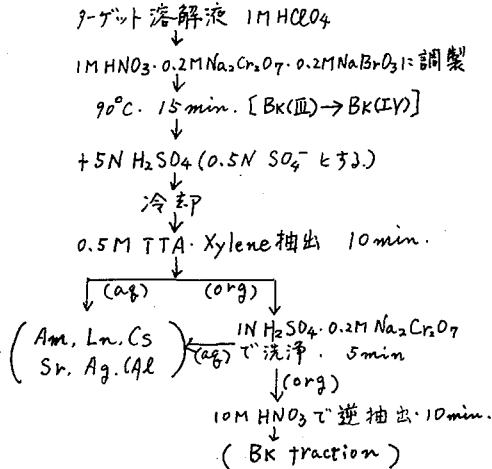 ターゲット溶解液 1M HClO4
1M HNO3・0.2M Na2Cr2O7・0.2M NaBrO3に調製
90℃・15 min. [BK(III)→BK(IV)]
+5N H2SO4 (0.5N SO4^- とする.)
冷却
0.5M TTA・Xylene抽出 10 min.
(aq) (org)
(Am, Ln, Cs
Sr, Ag, (Al)
(aq)
1N H2SO4・0.2M Na2Cr2O7
で洗浄. 5 min
(org)
10M HNO3で逆抽出・10 min.
(BK fraction)